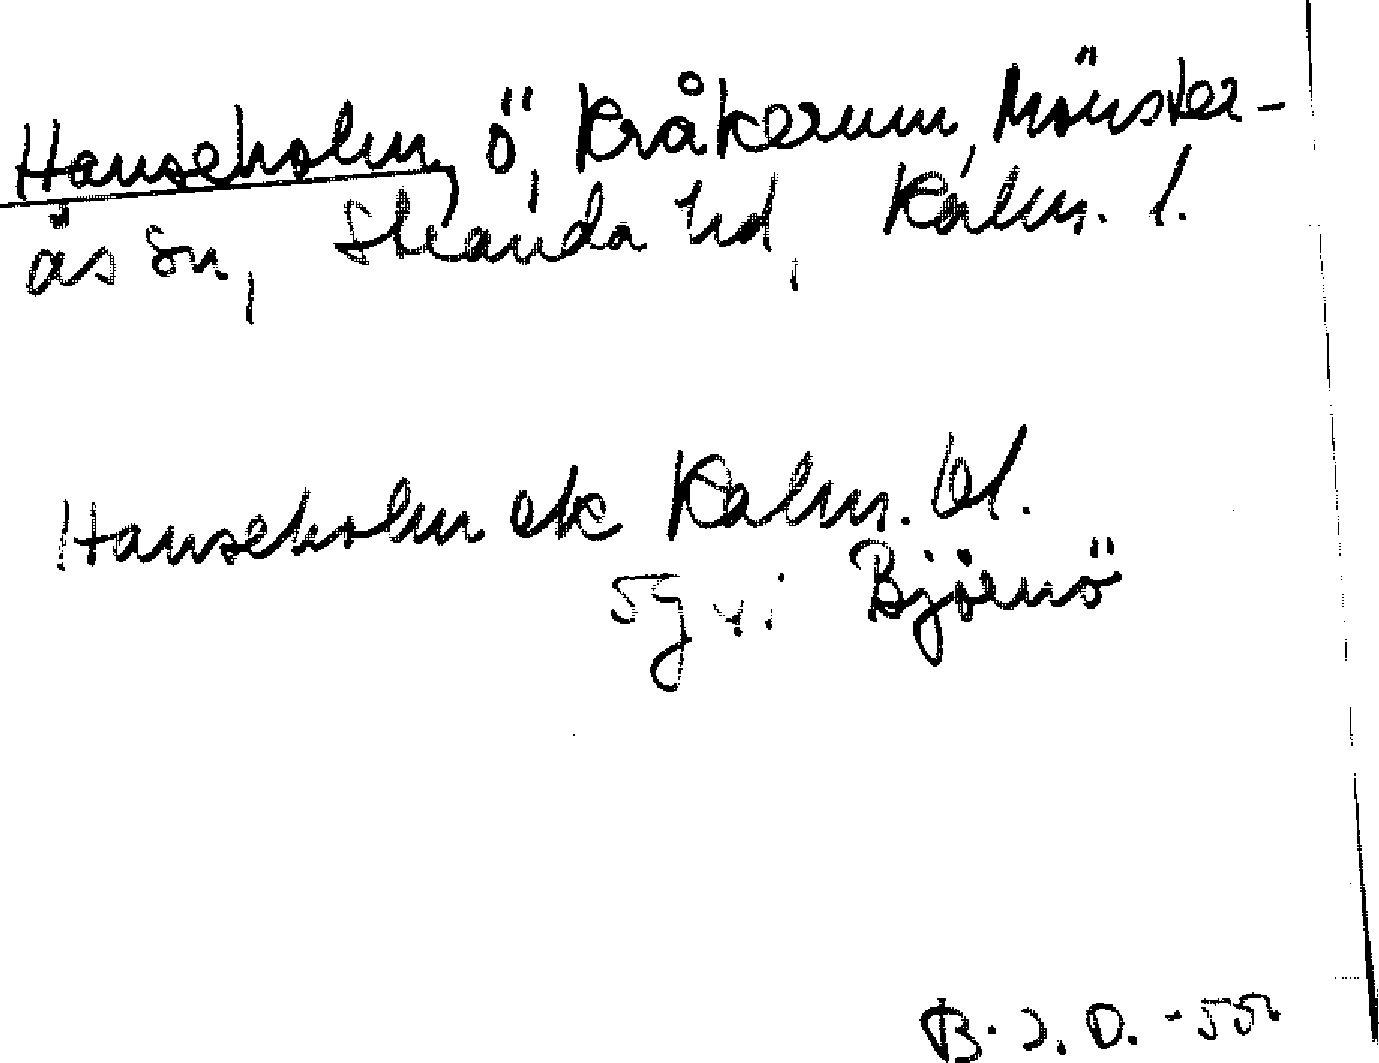 Hanseholm, ö, Kråkerum, Mönster-
ås sn, Stranda hd, Kalm. l.
Hanseholm ek Kalm. bl.
5g vi Björnö
B. J. O. -55